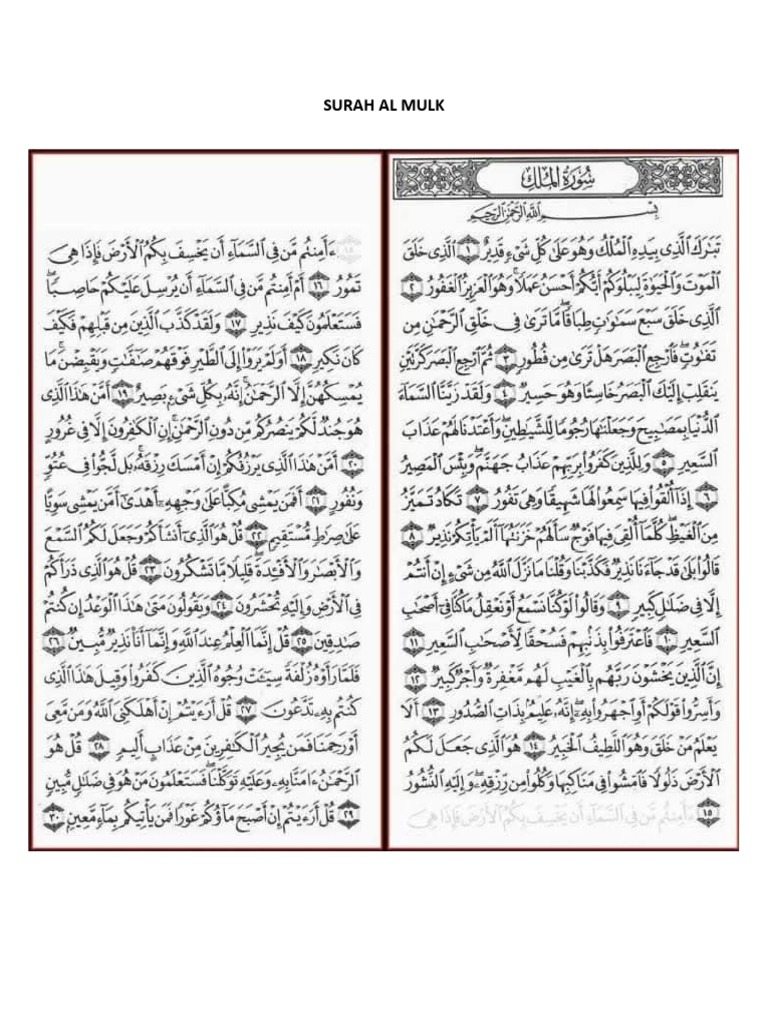 SURAH AL MULK
سُورَةُ المُلْكِ
بِسْمِ اللَّهِ الرَّحْمَٰنِ الرَّحِيمِ
تَبَارَكَ الَّذِي بِيَدِهِ الْمُلْكُ وَهُوَ عَلَىٰ كُلِّ شَيْءٍ قَدِيرٌ ١ الَّذِي خَلَقَ
الْمَوْتَ وَالْحَيَوٰةَ لِيَبْلُوَكُمْ أَيُّكُمْ أَحْسَنُ عَمَلًا ۚ وَهُوَ الْعَزِيزُ الْغَفُورُ ٢
الَّذِي خَلَقَ سَبْعَ سَمَٰوَٰتٍ طِبَاقًا ۖ مَّا تَرَىٰ فِي خَلْقِ الرَّحْمَٰنِ مِن
تَفَٰوُتٍ ۖ فَارْجِعِ الْبَصَرَ هَلْ تَرَىٰ مِن فُطُورٍ ٣ ثُمَّ ارْجِعِ الْبَصَرَ كَرَّتَيْنِ
يَنقَلِبْ إِلَيْكَ الْبَصَرُ خَاسِئًا وَهُوَ حَسِيرٌ ٤ وَلَقَدْ زَيَّنَّا السَّمَاءَ
الدُّنْيَا بِمَصَٰبِيحَ وَجَعَلْنَٰهَا رُجُومًا لِّلشَّيَٰطِينِ ۖ وَأَعْتَدْنَا لَهُمْ عَذَابَ
السَّعِيرِ ٥ وَلِلَّذِينَ كَفَرُوا بِرَبِّهِمْ عَذَابُ جَهَنَّمَ ۖ وَبِئْسَ الْمَصِيرُ
٦ إِذَا أُلْقُوا فِيهَا سَمِعُوا لَهَا شَهِيقًا وَهِيَ تَفُورُ ٧ تَكَادُ تَمَيَّزُ
مِنَ الْغَيْظِ ۖ كُلَّمَا أُلْقِيَ فِيهَا فَوْجٌ سَأَلَهُمْ خَزَنَتُهَا أَلَمْ يَأْتِكُمْ نَذِيرٌ ٨
قَالُوا بَلَىٰ قَدْ جَاءَنَا نَذِيرٌ فَكَذَّبْنَا وَقُلْنَا مَا نَزَّلَ اللَّهُ مِن شَيْءٍ إِنْ أَنتُمْ
إِلَّا فِي ضَلَٰلٍ كَبِيرٍ ٩ وَقَالُوا لَوْ كُنَّا نَسْمَعُ أَوْ نَعْقِلُ مَا كُنَّا فِي أَصْحَٰبِ
السَّعِيرِ ١٠ فَاعْتَرَفُوا بِذَنبِهِمْ فَسُحْقًا لِّأَصْحَٰبِ السَّعِيرِ ١١
إِنَّ الَّذِينَ يَخْشَوْنَ رَبَّهُم بِالْغَيْبِ لَهُم مَّغْفِرَةٌ وَأَجْرٌ كَبِيرٌ ١٢
وَأَسِرُّوا قَوْلَكُمْ أَوِ اجْهَرُوا بِهِ ۖ إِنَّهُ عَلِيمٌ بِذَاتِ الصُّدُورِ ١٣ أَلَا
يَعْلَمُ مَنْ خَلَقَ وَهُوَ اللَّطِيفُ الْخَبِيرُ ١٤ هُوَ الَّذِي جَعَلَ لَكُمُ
الْأَرْضَ ذَلُولًا فَامْشُوا فِي مَنَاكِبِهَا وَكُلُوا مِن رِّزْقِهِ ۖ وَإِلَيْهِ النُّشُورُ
١٥ ءَأَمِنتُم مَّن فِي السَّمَاءِ أَن يَخْسِفَ بِكُمُ الْأَرْضَ فَإِذَا هِيَ
١٥ ءَأَمِنتُم مَّن فِي السَّمَاءِ أَن يَخْسِفَ بِكُمُ الْأَرْضَ فَإِذَا هِيَ
تَمُورُ ١٦ أَمْ أَمِنتُم مَّن فِي السَّمَاءِ أَن يُرْسِلَ عَلَيْكُمْ حَاصِبًا ۖ
فَسَتَعْلَمُونَ كَيْفَ نَذِيرِ ١٧ وَلَقَدْ كَذَّبَ الَّذِينَ مِن قَبْلِهِمْ فَكَيْفَ
كَانَ نَكِيرِ ١٨ أَوَلَمْ يَرَوْا إِلَى الطَّيْرِ فَوْقَهُمْ صَٰفَّٰتٍ وَيَقْبِضْنَ ۚ مَا
يُمْسِكُهُنَّ إِلَّا الرَّحْمَٰنُ ۚ إِنَّهُ بِكُلِّ شَيْءٍ بَصِيرٌ ١٩ أَمَّنْ هَٰذَا الَّذِي
هُوَ جُندٌ لَّكُمْ يَنصُرُكُم مِّن دُونِ الرَّحْمَٰنِ ۚ إِنِ الْكَٰفِرُونَ إِلَّا فِي غُرُورٍ
٢٠ أَمَّنْ هَٰذَا الَّذِي يَرْزُقُكُمْ إِنْ أَمْسَكَ رِزْقَهُ ۚ بَل لَّجُّوا فِي عُتُوٍّ
وَنُفُورٍ ٢١ أَفَمَن يَمْشِي مُكِبًّا عَلَىٰ وَجْهِهِ أَهْدَىٰ أَمَّن يَمْشِي سَوِيًّا
عَلَىٰ صِرَٰطٍ مُّسْتَقِيمٍ ٢٢ قُلْ هُوَ الَّذِي أَنشَأَكُمْ وَجَعَلَ لَكُمُ السَّمْعَ
وَالْأَبْصَٰرَ وَالْأَفْـِٔدَةَ ۖ قَلِيلًا مَّا تَشْكُرُونَ ٢٣ قُلْ هُوَ الَّذِي ذَرَأَكُمْ
فِي الْأَرْضِ وَإِلَيْهِ تُحْشَرُونَ ٢٤ وَيَقُولُونَ مَتَىٰ هَٰذَا الْوَعْدُ إِن كُنتُمْ
صَٰدِقِينَ ٢٥ قُلْ إِنَّمَا الْعِلْمُ عِندَ اللَّهِ وَإِنَّمَا أَنَا نَذِيرٌ مُّبِينٌ ٢٦
فَلَمَّا رَأَوْهُ زُلْفَةً سِيـَٔتْ وُجُوهُ الَّذِينَ كَفَرُوا وَقِيلَ هَٰذَا الَّذِي
كُنتُم بِهِ تَدَّعُونَ ٢٧ قُلْ أَرَءَيْتُمْ إِنْ أَهْلَكَنِيَ اللَّهُ وَمَن مَّعِيَ
أَوْ رَحِمَنَا فَمَن يُجِيرُ الْكَٰفِرِينَ مِنْ عَذَابٍ أَلِيمٍ ٢٨ قُلْ هُوَ
الرَّحْمَٰنُ ءَامَنَّا بِهِ وَعَلَيْهِ تَوَكَّلْنَا ۖ فَسَتَعْلَمُونَ مَنْ هُوَ فِي ضَلَٰلٍ مُّبِينٍ
٢٩ قُلْ أَرَءَيْتُمْ إِنْ أَصْبَحَ مَاؤُكُمْ غَوْرًا فَمَن يَأْتِيكُم بِمَاءٍ مَّعِينٍ ٣٠